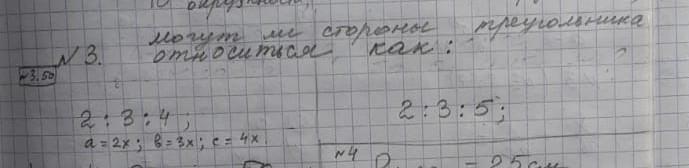 окружности,
№3. могут ли стороны треугольника
относиться как:
№3.50
2 : 3 : 4 ;
2 : 3 : 5 ;
a = 2x ; b = 3x ; c = 4x
№4
= 25 см